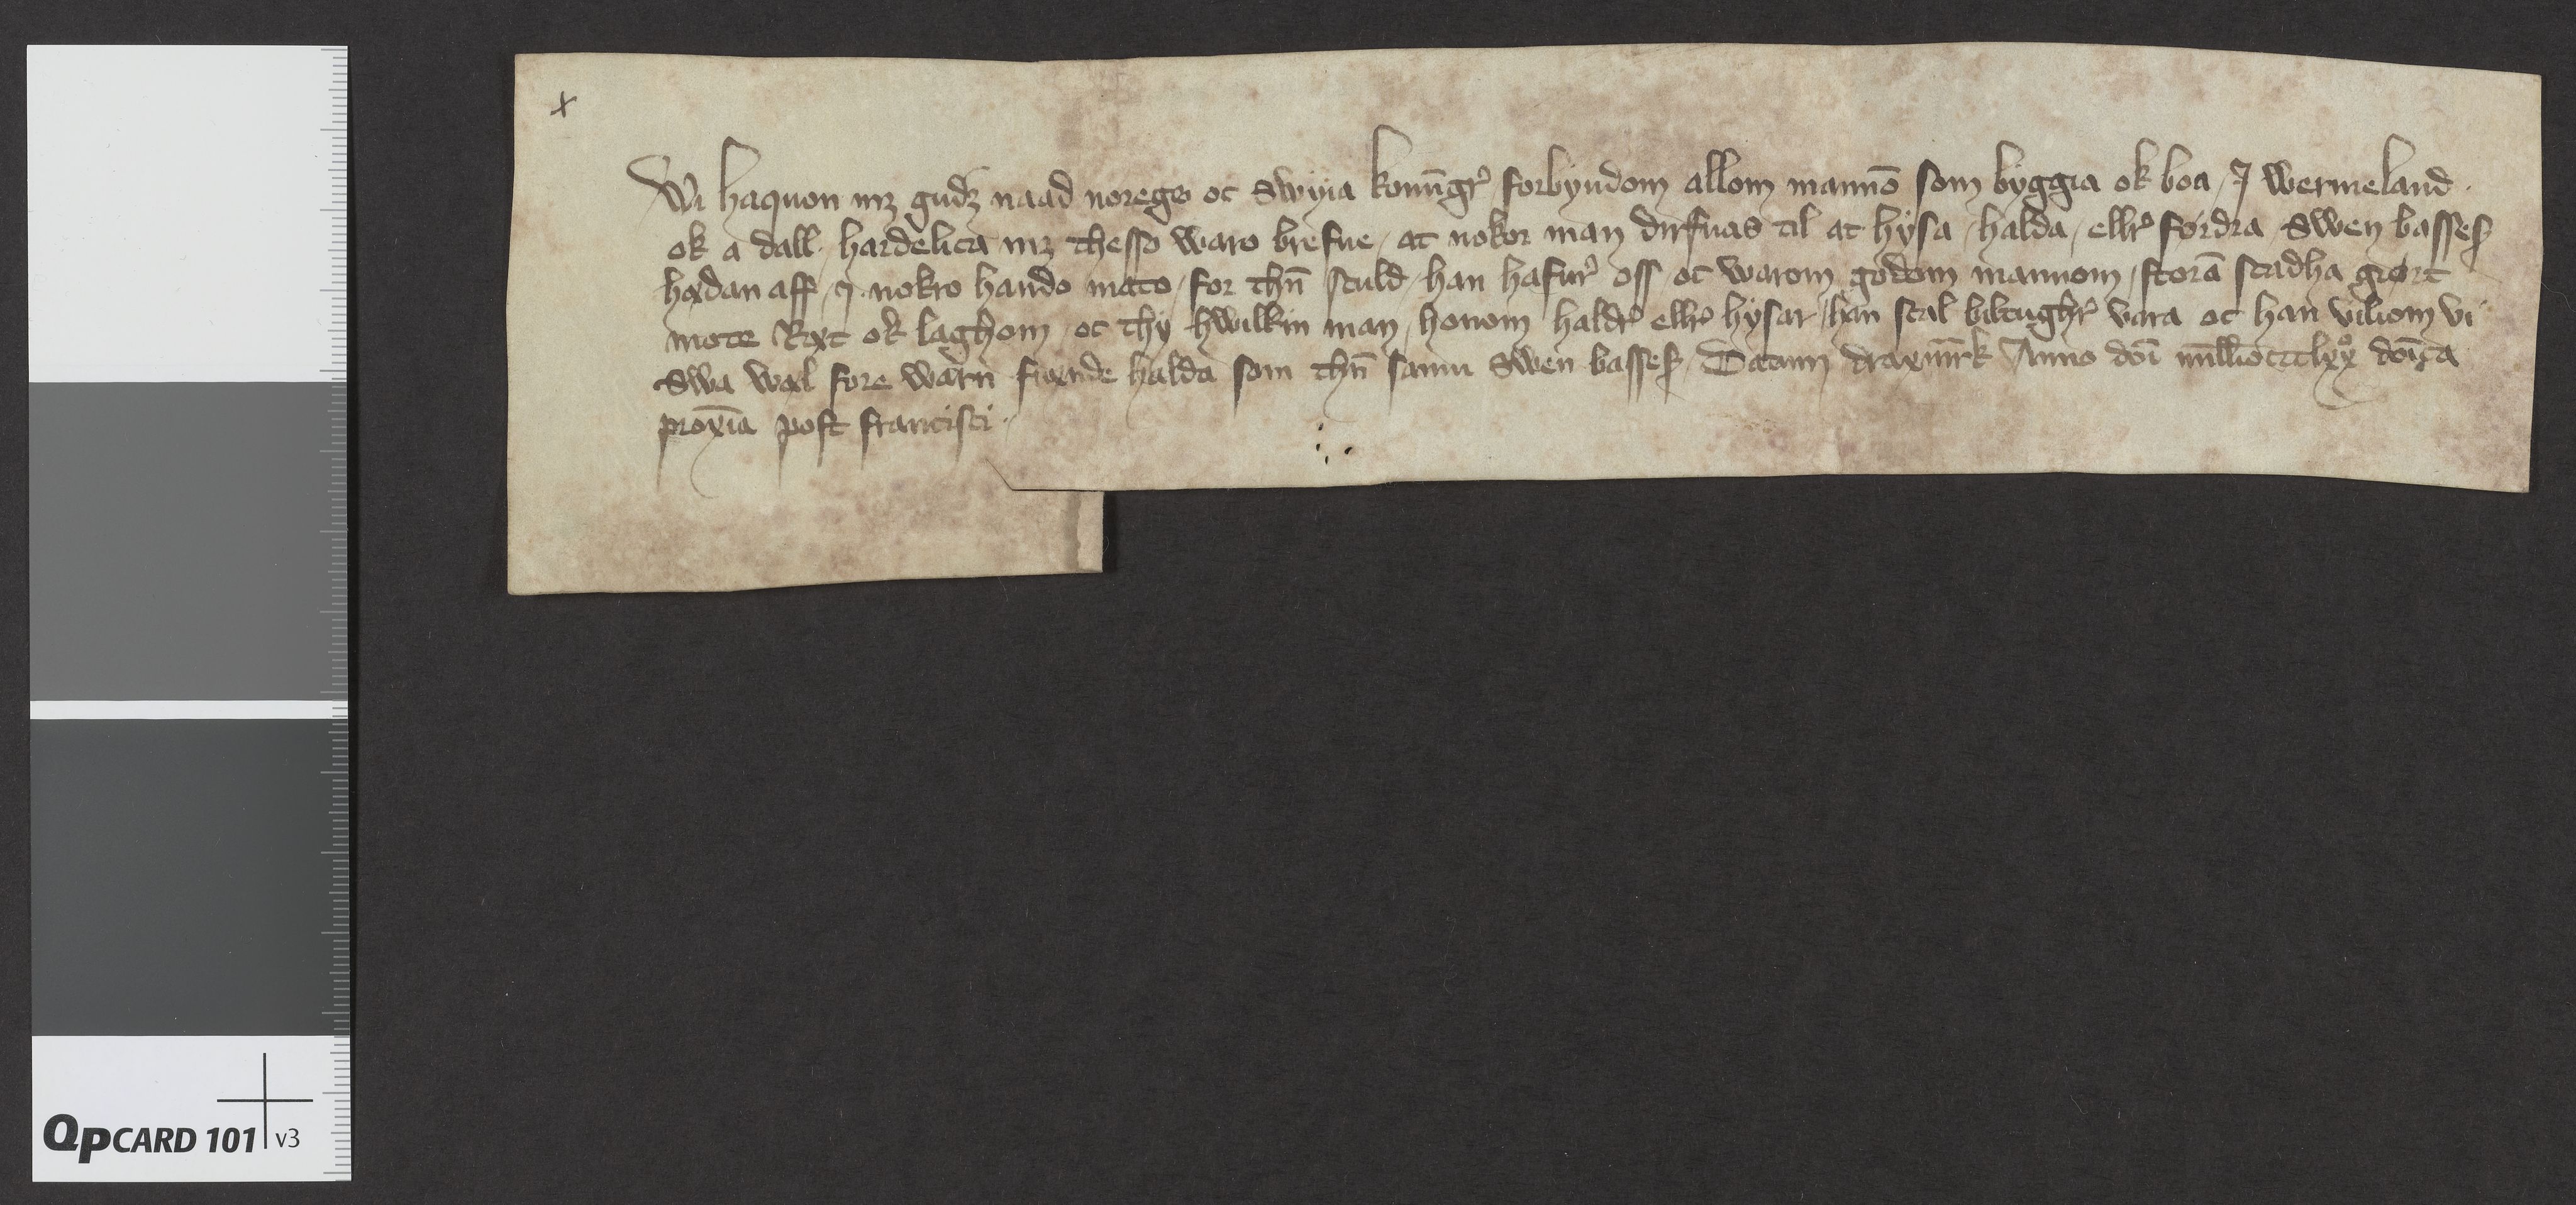 x
Wi haquon mz gudz naad noregs oc Swyia konūgr forbyndom allom mannō som byggia ok boa / J wermeland ·
ok a dall · hardelica mz thesso waro brefue / at nokor man dirfuas til at hysa / halda / ellr fordra Swen basses
hædan aff / J nokro hando mato / for thn̄ sculd / han hafur oss oc warom godom mannom / storā scadha giort
mote Ræt ok laghom / oc thy hwilkin man / honom haldr ellr hysar / han scal biltughr vara oc han viliom vi
Swa wæl fore warn fiænde halda som thn̄ samu Swen basses / Datum draxm̄rk Anno dōi mīlliōccclxx° dōīca
proxīa post francisci ·
QpCARD 101 v3